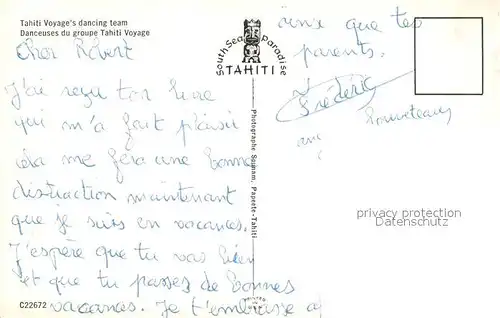 Tahiti Voyage's dancing team
Danceuses du groupe Tahiti Voyage
Cher Robert
J'ai reçu ton livre
qui m'a fait plaisir
cela me fera une bonne
distraction maintenant
que je suis en vacances.
J'espère que tu vas bien
et que tu passes de bonnes
vacances. Je t'embrasse
C22672
South Sea Paradise
TAHITI
Photographe Sounam, Papeete-Tahiti
PRINTED
ainsi que tes
parents.
Frédéric
privacy protection
Datenschutz